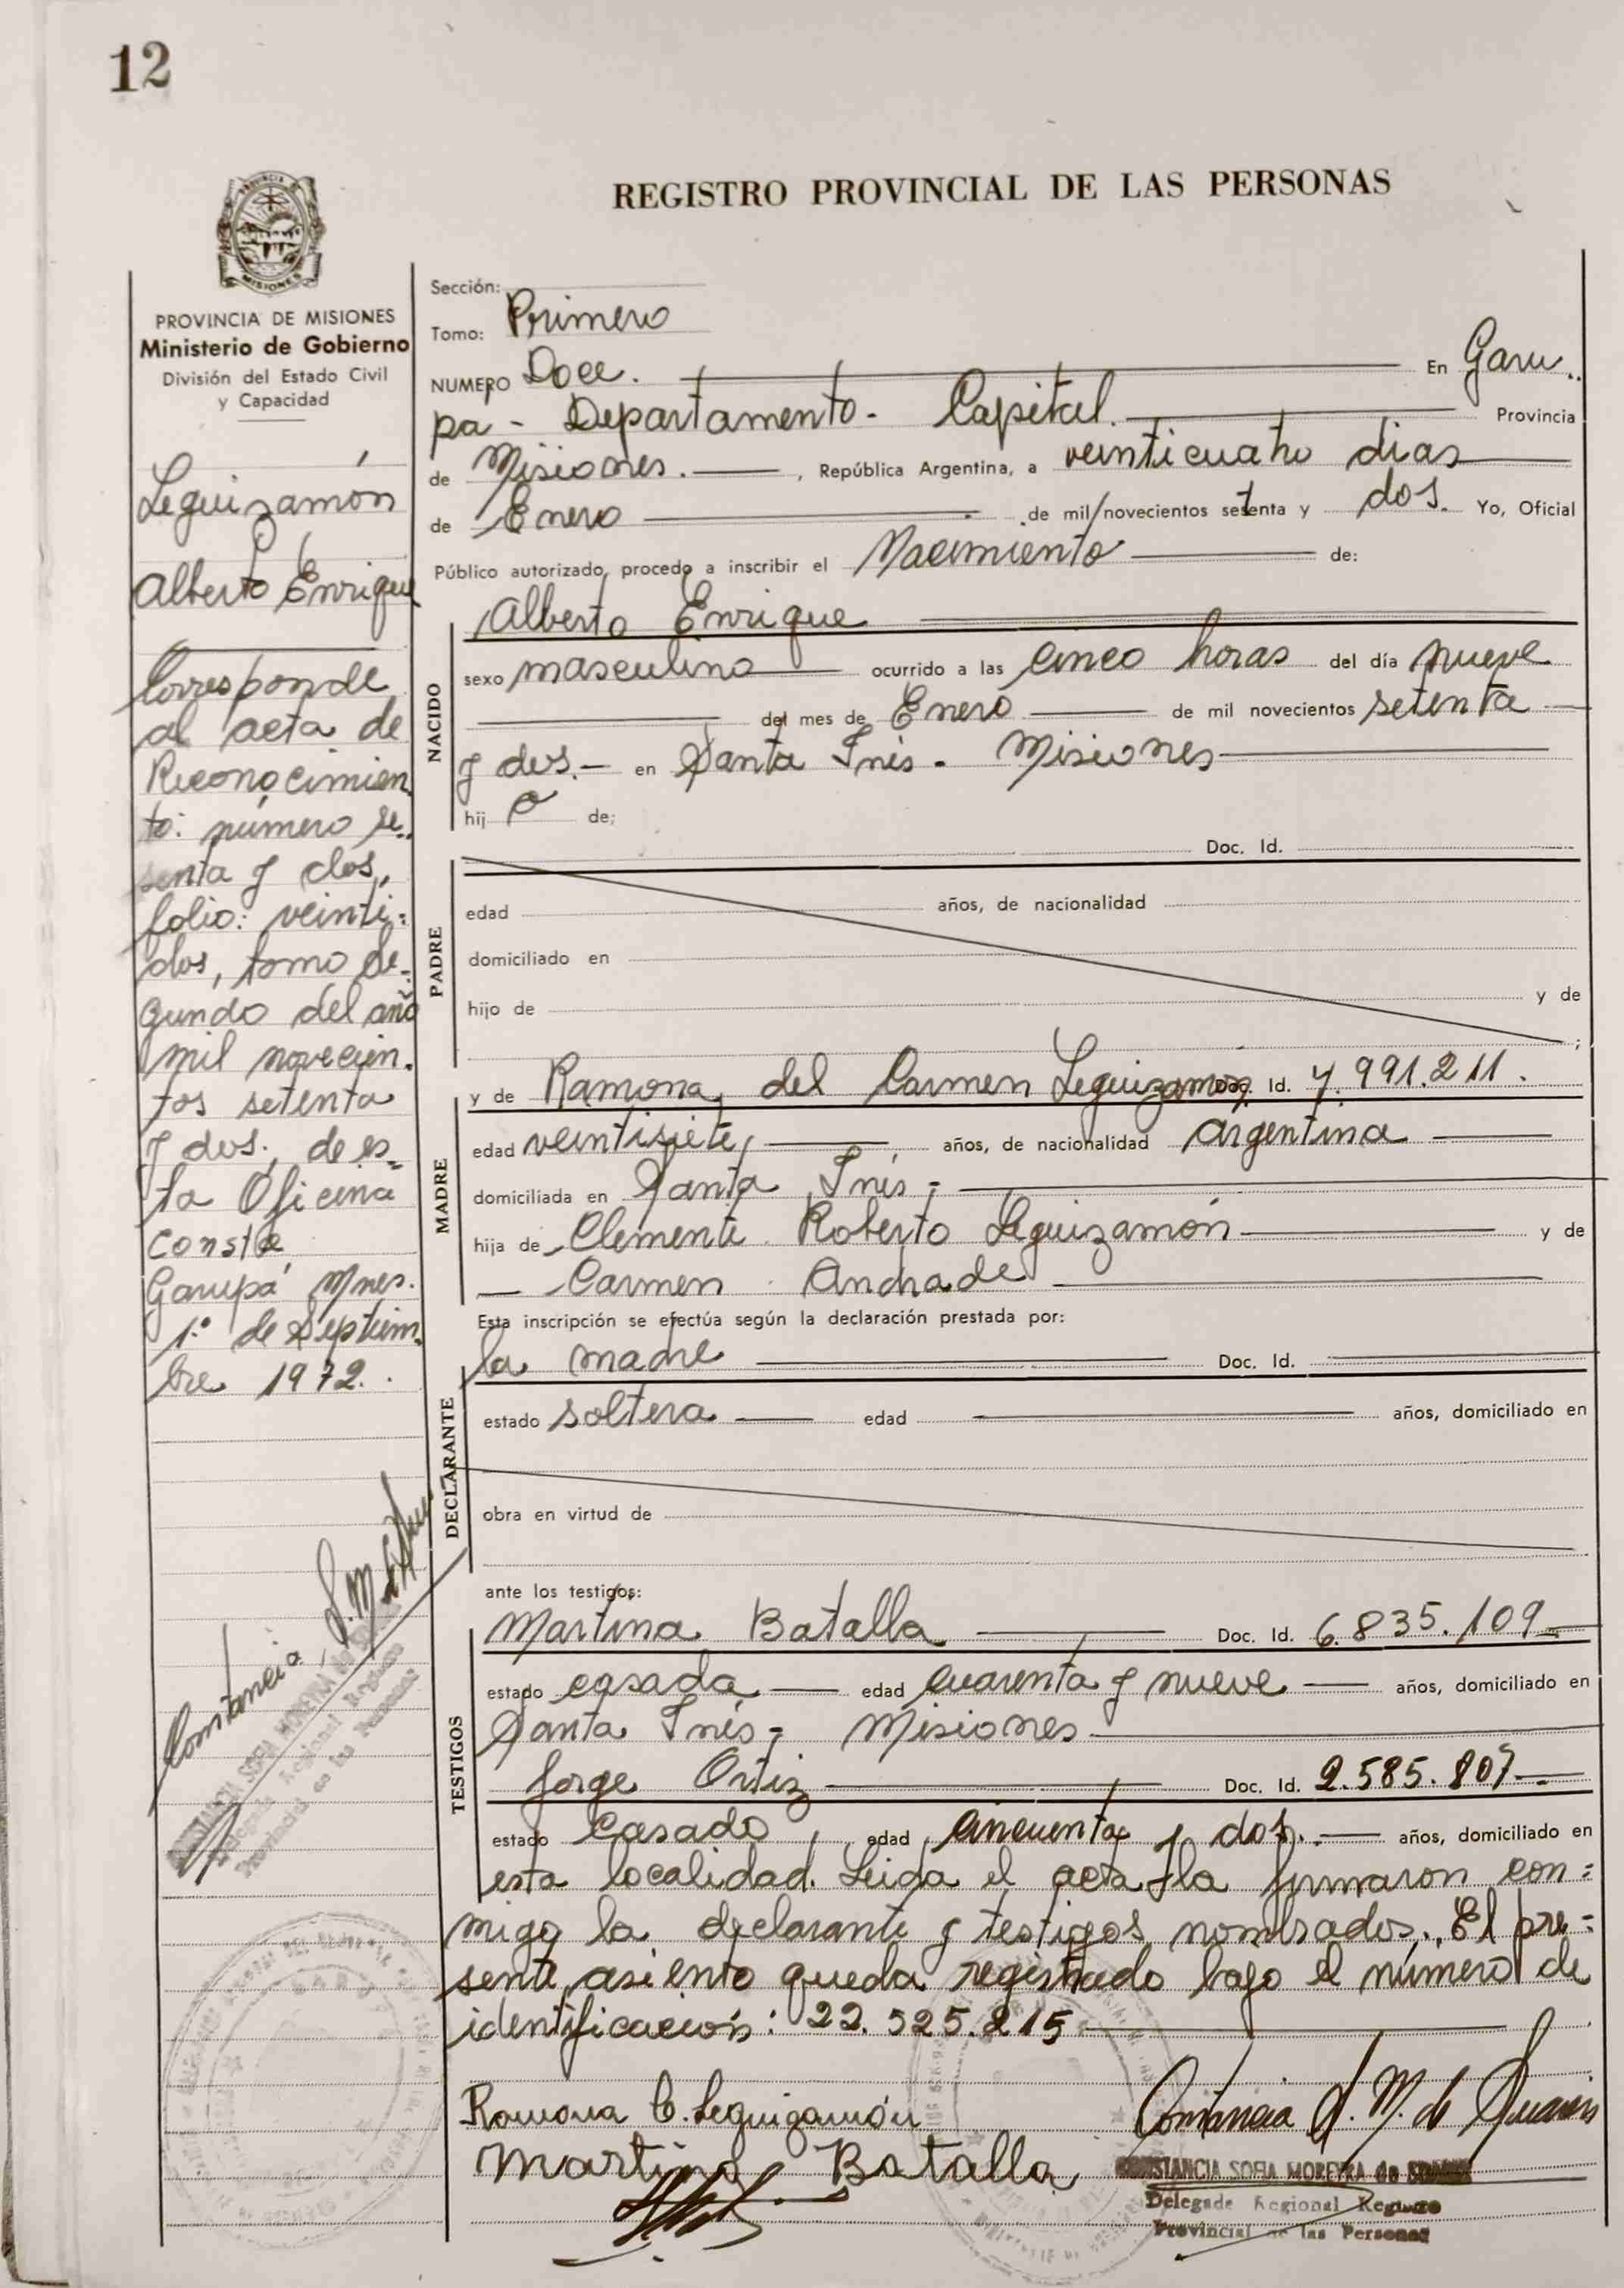 12
REGISTRO PROVINCIAL DE LAS PERSONAS
MISIONES
PROVINCIA DE MISIONES
Ministerio de Gobierno
División del Estado Civil
y Capacidad
Leguizamón
Alberto Enrique
Corresponde
al acta de
Reconocimien
to: número se..
senta y dos,
folio: veinti:
dos, tomo se-
gundo del año
mil novecien.
tos setenta
y dos., de es-
ta Oficina
Conste
Garupá Mnes.
1.º de Septiem
bre 1972..
Constancia S. M. de
CONSTANCIA SOFIA MOREIRA de
Delegada Regional Registro
Provincial de las Personas
Sección:
Tomo: Primero
NUMERO Doce. En Garu..
pá - Departamento - Capital. Provincia
de Misiones. , República Argentina, a veinticuatro dias
de Enero de mil novecientos setenta y dos. Yo, Oficial
Público autorizado, procedo a inscribir el Nacimiento de:
NACIDO
Alberto Enrique
sexo masculino ocurrido a las cinco horas del día nueve
del mes de Enero de mil novecientos setenta
y dos.- en Santa Inés - Misiones
hij o de;
PADRE
Doc. Id.
edad años, de nacionalidad
domiciliado en
hijo de y de
;
MADRE
y de Ramona del Carmen Leguizamón Doc. Id. 4.991.211.
edad veintisiete, años, de nacionalidad argentina
domiciliada en Santa Inés -
hija de Clemente Roberto Leguizamón y de
Carmen Andrade
Esta inscripción se efectúa según la declaración prestada por:
DECLARANTE
la madre Doc. Id.
estado soltera edad años, domiciliado en
obra en virtud de
ante los testigos:
TESTIGOS
Martina Batalla Doc. Id. 6.835.109
estado casada edad cuarenta y nueve años, domiciliado en
Santa Inés - Misiones
Jorge Ortiz Doc. Id. 2.585.807
estado casado edad cincuenta y dos. años, domiciliado en
esta localidad. Leida el acta la firmaron con=
migo la declarante y testigos nombrados. El pre=
sente asiento queda registrado bajo el número de
identificación: 22.525.215
Ramona C. Leguizamón
Martina Batalla
Constancia S. M. de
CONSTANCIA SOFIA MOREIRA de
Delegada Regional Registro
Provincial de las Personas